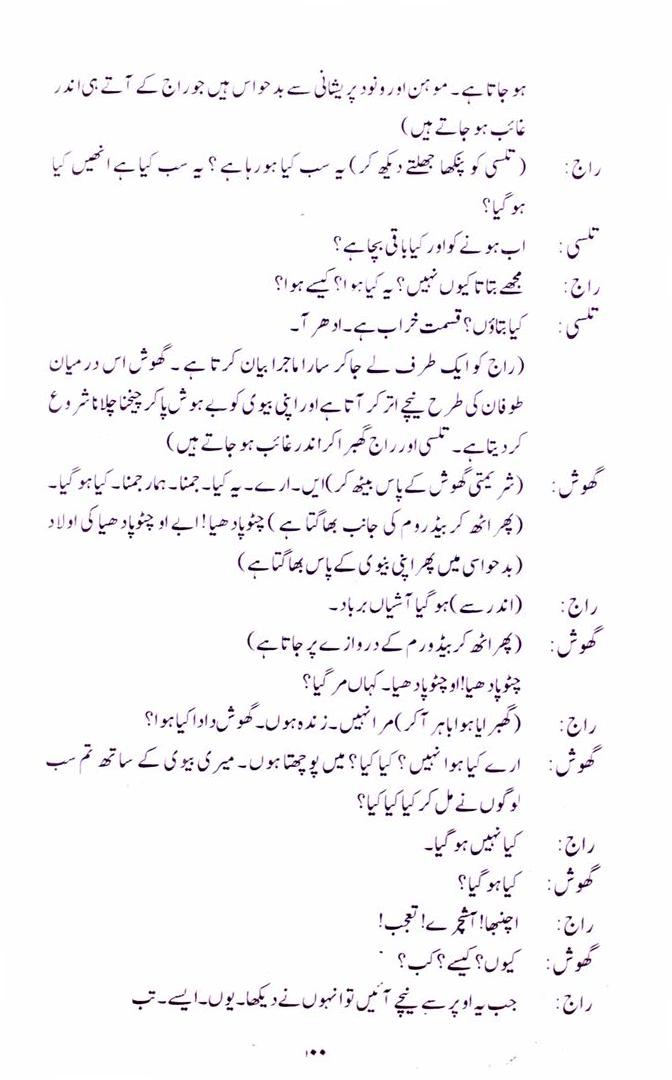 ہو جاتا ہے۔ موہن اور ونود پریشانی سے بدحواس ہیں جو راج کے آتے ہی اندر
غائب ہو جاتے ہیں)
راج: (تلسی کو پنکھا جھلتے دیکھ کر) یہ سب کیا ہو رہا ہے؟ یہ سب کیا ہے انھیں کیا
ہو گیا؟
تلسی: اب ہونے کو اور کیا باقی بچا ہے؟
راج: مجھے بتاتا کیوں نہیں؟ یہ کیا ہوا؟ کیسے ہوا؟
تلسی: کیا بتاؤں؟ قسمت خراب ہے۔ ادھر آ۔
(راج کو ایک طرف لے جا کر سارا ماجرا بیان کرتا ہے۔ گھوش اس درمیان
طوفان کی طرح نیچے اتر کر آتا ہے اور اپنی بیوی کو بے ہوش پا کر چیخنا چلانا شروع
کر دیتا ہے۔ تلسی اور راج گھبرا کر اندر غائب ہو جاتے ہیں)
گھوش: (شریمتی گھوش کے پاس بیٹھ کر) ایں۔ ارے۔ یہ کیا۔ جمنا۔ ہمار جمنا۔ کیا ہو گیا۔
(پھر اٹھ کر بیڈ روم کی جانب بھاگتا ہے) چٹوپادھیا! ابے او چٹوپادھیا کی اولاد
(بدحواسی میں پھر اپنی بیوی کے پاس بھاگتا ہے)
راج: (اندر سے) ہو گیا آشیاں برباد۔
گھوش: (پھر اٹھ کر بیڈ ورم کے دروازے پر جاتا ہے)
چٹوپادھیا! او چٹوپادھیا۔ کہاں مر گیا؟
راج: (گھبرایا ہوا باہر آ کر) مرا نہیں۔ زندہ ہوں۔ گھوش دادا کیا ہوا؟
گھوش: ارے کیا ہوا نہیں؟ کیا کیا؟ میں پوچھتا ہوں۔ میری بیوی کے ساتھ تم سب
لوگوں نے مل کر کیا کیا کیا؟
راج: کیا نہیں ہو گیا۔
گھوش: کیا ہو گیا؟
راج: اچنبھا! آشچرے! تعجب!
گھوش: کیوں؟ کیسے؟ کب؟
راج: جب یہ اوپر سے نیچے آئیں تو انہوں نے دیکھا۔ یوں۔ ایسے۔ تب
۱۰۰